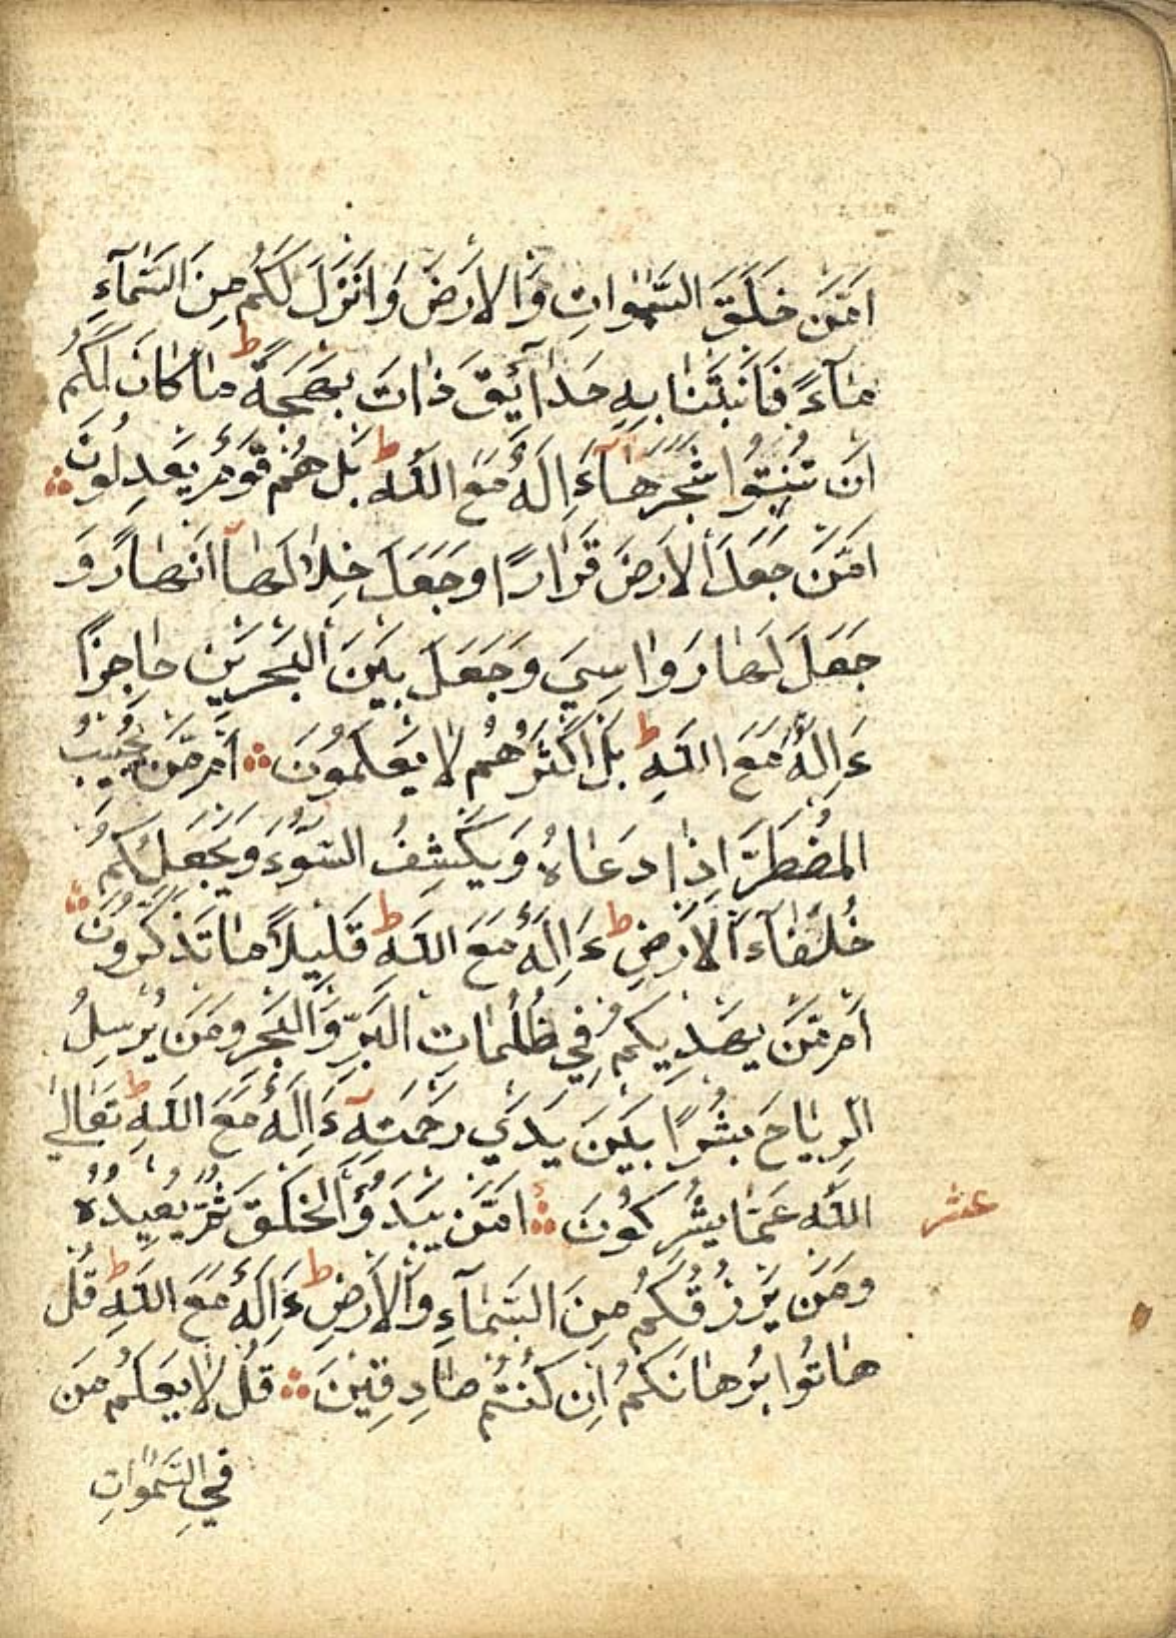 اَمَّنْ خَلَقَ السَّمٰوَاتِ وَالْاَرْضَ وَاَنْزَلَ لَكُمْ مِنَ السَّمَآءِ
مَآءً فَاَنْبَتْنَا بِهِ حَدَآئِقَ ذَاتَ بَهْجَةٍ ط مَا كَانَ لَكُمْ
اَنْ تُنْبِتُوا شَجَرَهَا ءَاِلَهٌ مَعَ اللّٰهِ ط بَلْ هُمْ قَوْمٌ يَعْدِلُونَ
اَمَّنْ جَعَلَ الْاَرْضَ قَرَارًا وَجَعَلَ خِلَالَهَآ اَنْهَارً وَ
جَعَلَ لَهَا رَوَاسِيَ وَجَعَلَ بَيْنَ الْبَحْرَيْنِ حَاجِزًا
ءَاِلَهٌ مَعَ اللّٰهِ ط بَلْ اَكْثَرُهُمْ لَا يَعْلَمُونَ اَمَّنْ يُجِيبُ
الْمُضْطَرَّ اِذَا دَعَاهُ وَيَكْشِفُ السُّوٓءَ وَيَجْعَلُكُمْ
خُلَفَآءَ الْاَرْضِ ط ءَاِلَهٌ مَعَ اللّٰهِ ط قَلِيلًا مَا تَذَكَّرُونَ
اَمَّنْ يَهْدِيكُمْ فِي ظُلُمَاتِ الْبَرِّ وَالْبَحْرِ وَمَنْ يُرْسِلُ
الرِّيَاحَ بُشْرًا بَيْنَ يَدَيْ رَحْمَتِهِ ءَاِلَهٌ مَعَ اللّٰهِ ط تَعَالَى
اللّٰهُ عَمَّا يُشْرِكُونَ اَمَّنْ يَبْدَؤُ الْخَلْقَ ثُمَّ يُعِيدُهُ
عشر
وَمَنْ يَرْزُقُكُمْ مِنَ السَّمَآءِ وَالْاَرْضِ ط ءَاِلَهٌ مَعَ اللّٰهِ ط قُلْ
هَاتُوا بُرْهَانَكُمْ اِنْ كُنْتُمْ صَادِقِينَ قُلْ لَا يَعْلَمُ مَنْ
فِي السَّمٰوَاتِ